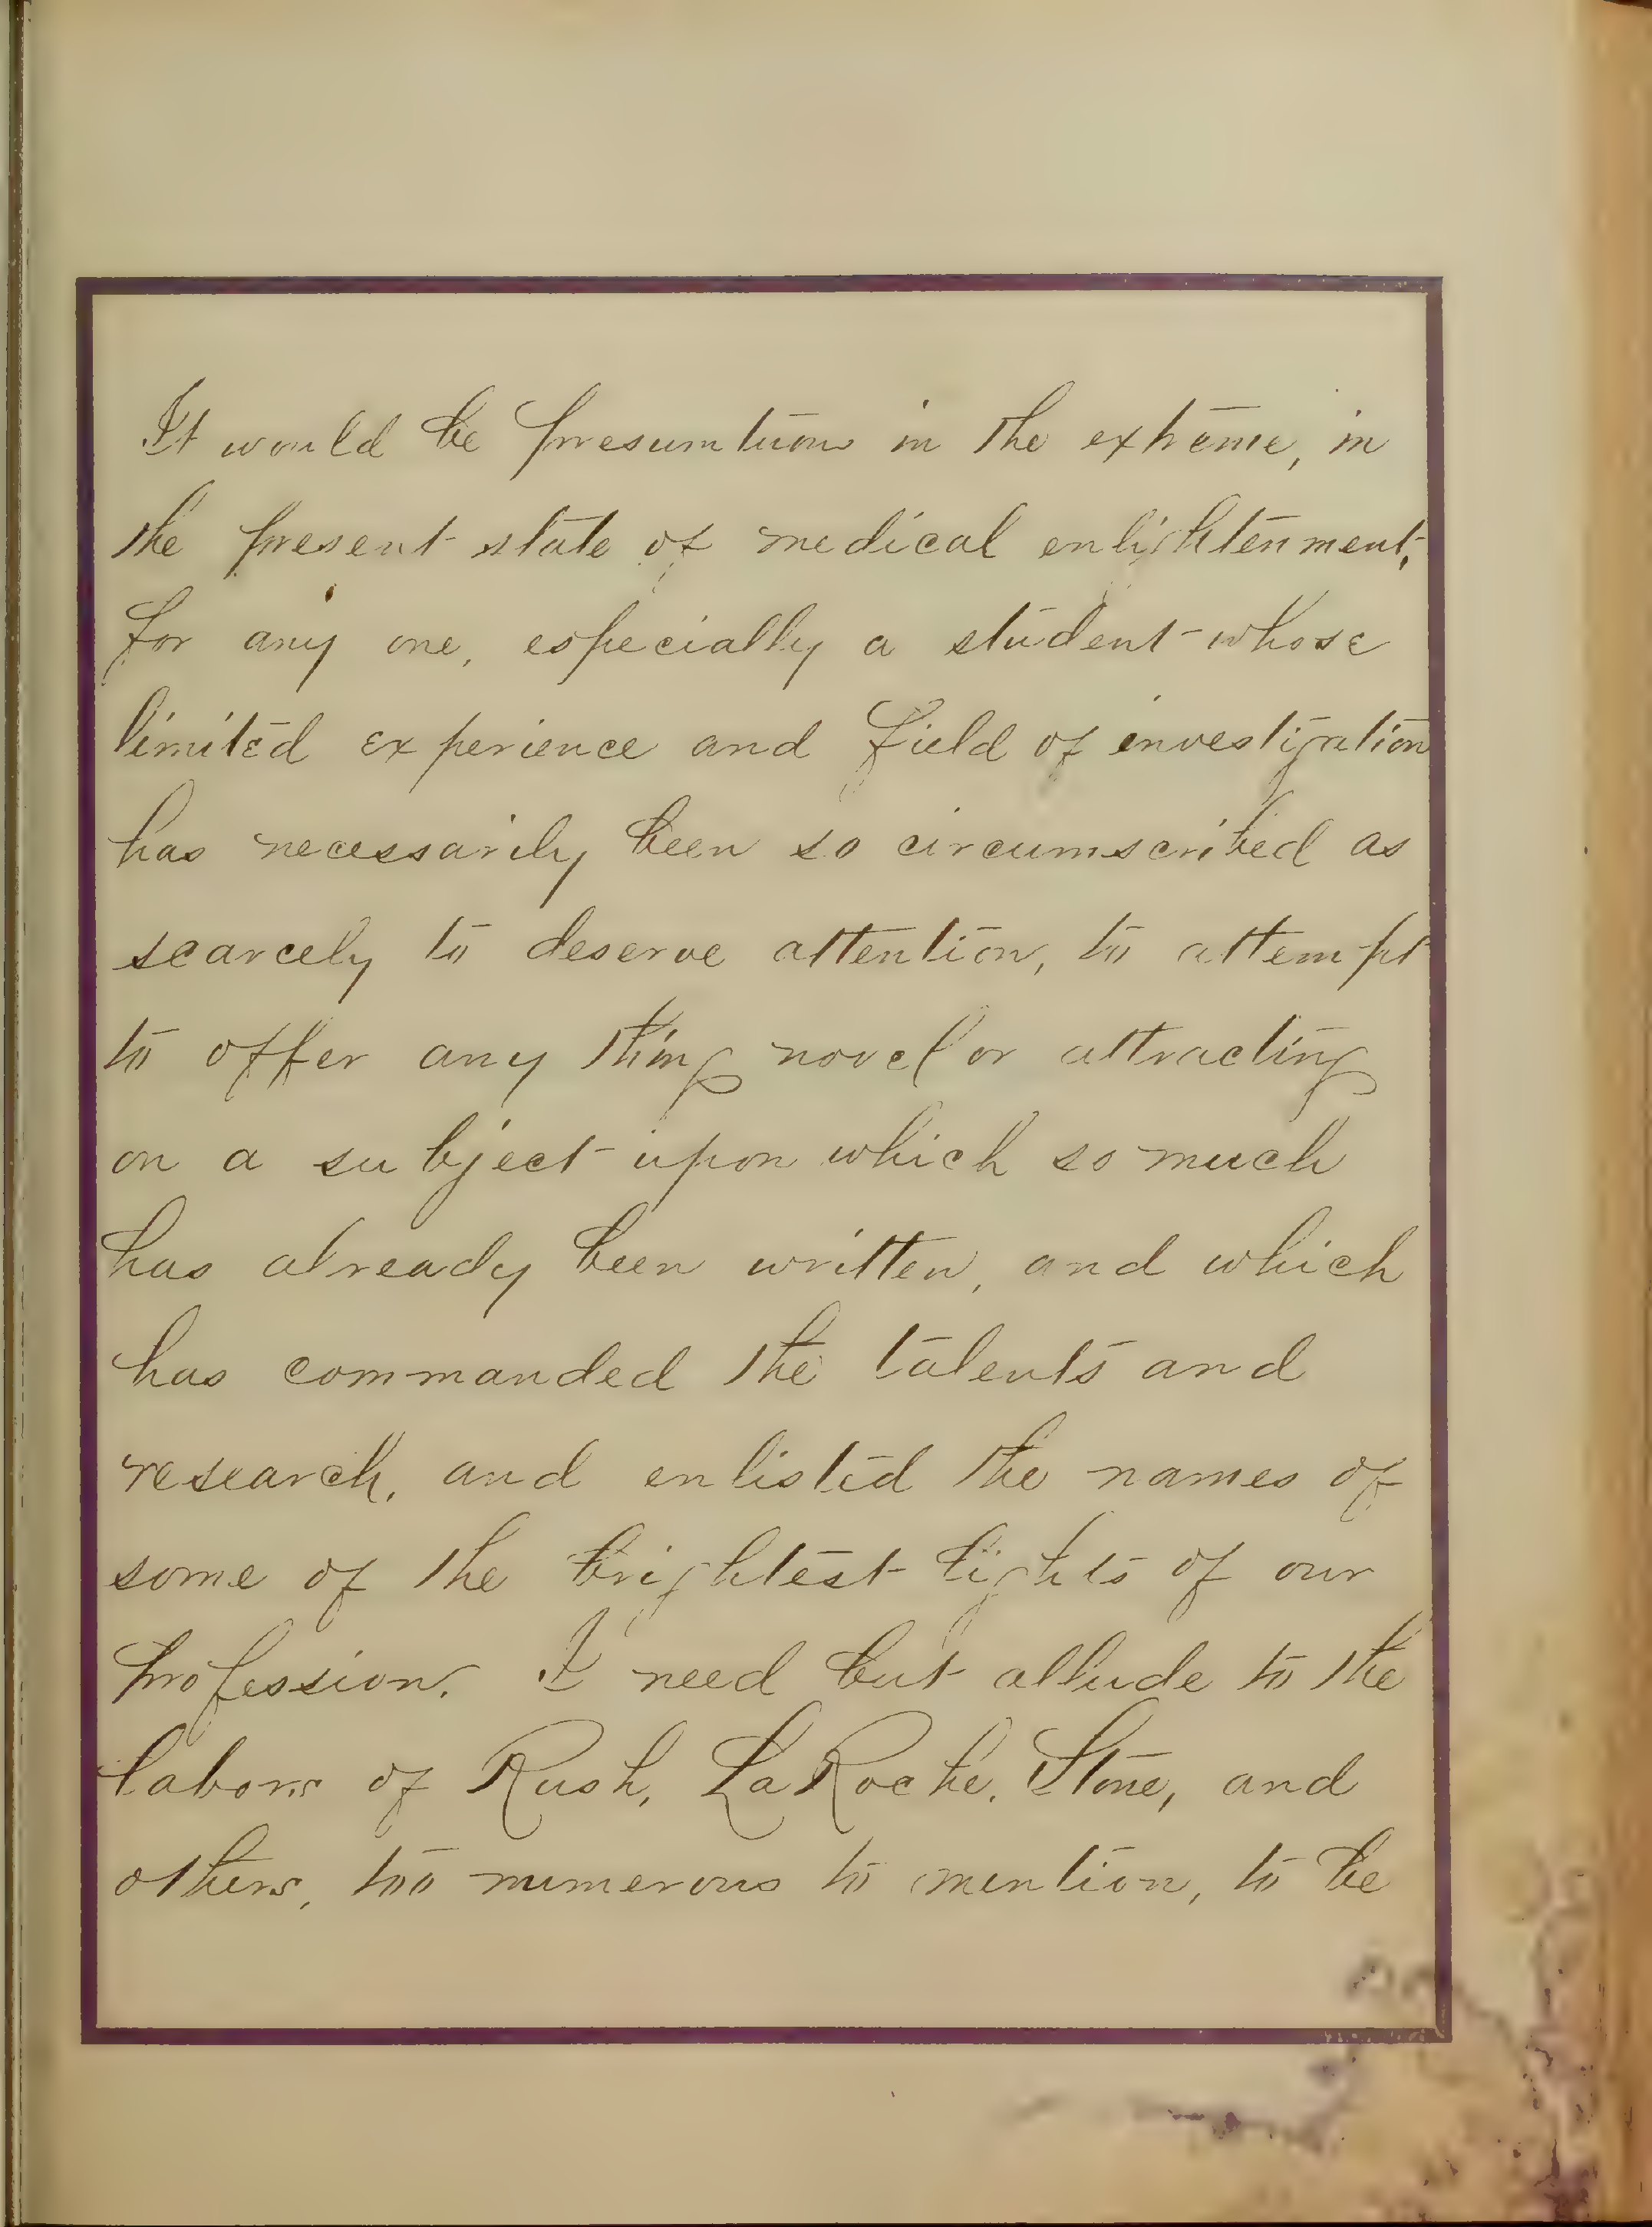 It would be presumtion in the extreme, in
the present state of medical enlightenment,
for any one, especially a student whose
limited experience and field of investigation
has necessarily been so circumscribed as
scarcely to deserve attention, to attempt
to offer any thing novel or attracting
on a subject upon which so much
has already been written, and which
has commanded the talents and
research, and enlisted the names of
some of the brightest lights of our
profession. I need but allude to the
labors of Rush, LaRoche, Stone, and
others, too numerous to mention, to be